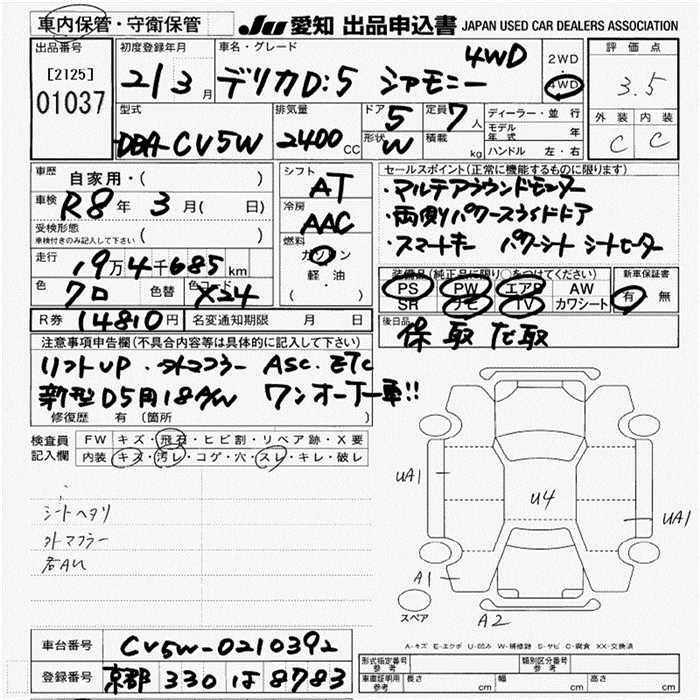 車内保管・守衛保管
JU 愛知 出品申込書 JAPAN USED CAR DEALERS ASSOCIATION
出品番号 初度登録年月 車名・グレード 評価点
[2125] 01037
21 3月 デリカD:5 シャモニー 4WD
2WD・4WD
3.5
型式 排気量 ドア 5 定員 7人 ディーラー・並行 外装 内装
DBA-CV5W 2400CC 形状 W 積載 kg モデル年式 年 C C
ハンドル 左・右
車歴 自家用・( ) シフト AT セールスポイント(正常に機能するものに限ります)
車検 R8年 3月( 日) 冷房 AAC ・マルチアラウンドモニター
受検形態 車検付きのみ記入して下さい ( ) 燃料 ・両側パワースライドドア
走行 19万4千685km ガソリン ・スマートキー パワーシート シートヒーター
軽・油
( )
装備品(純正品に限り○をつけてください) 新車保証書
色 クロ 色替 色コード X24 PS PW エアB AW 有・無
SR ナビ TV カワシート
R券 14810円 名変通知期限 月 日 後日品 保 取 だ取
注意事項申告欄(不具合内容等は具体的に記入して下さい)
リフトUP・外マフラー ASC・ETC
新型D5用18A/W ワンオーナー車!!
修復歴 有 (箇所 )
検査員記入欄 FW キズ・飛石・ヒビ割・リペア跡・X要
内装 キズ・汚レ・コゲ・穴・スレ・キレ・破レ
シートヘタリ
外マフラー
UA1 U4 UA1
A1 A2
スペア
A-キズ E-エクボ U-凹み W-補修跡 S-サビ C-腐食 XX-交換済
車台番号 CV5W-0210392
登録番号 京都 330 は 8783
形式指定番号 参考 類別区分番号 参考
車庫証明用 参考 長さ cm 幅 cm 高さ cm